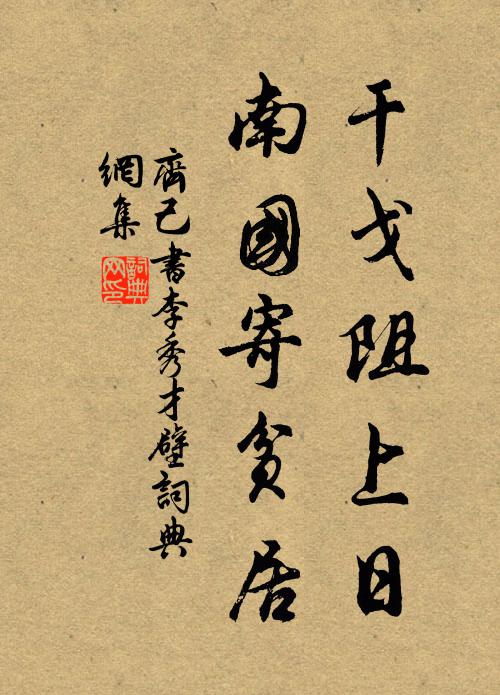 干戈阻上日
南國寄貧居
齊己書李秀才壁詞典
網集
詞典網印